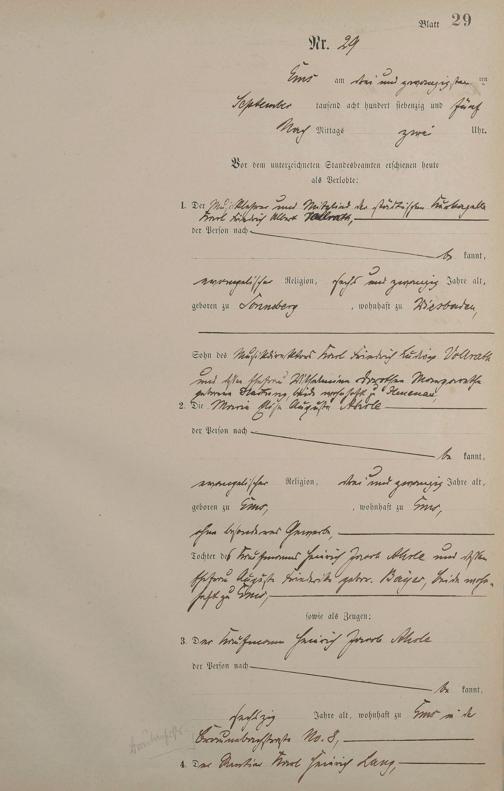 Blatt 29
Nr. 29
Ems am drei und zwanzigsten ten
September tausend acht hundert siebenzig und fünf
Nach Mittags zwei Uhr.
Vor dem unterzeichneten Standesbeamten erschienen heute
als Verlobte:
1. Der Musiklehrer und Mitglied der städtischen Kurkapelle
Karl Friedrich Albert Vollrath,
der Person nach
be kannt,
evangelischer Religion, sechs und zwanzig Jahre alt,
geboren zu Sonneberg, wohnhaft zu Wiesbaden,
Sohn des Musikdirektors Karl Friedrich Ludwig Vollrath
und dessen Ehefrau Wilhelmine Dorothea Margaretha
geborene beide wohnhaft zu Ilmenau,
2. Die Maria Rosa Auguste
der Person nach
be kannt,
evangelischer Religion, drei und zwanzig Jahre alt,
geboren zu Ems, , wohnhaft zu Ems,
ohne besonderes Gewerbe,
Tochter des Kaufmannes Heinrich Jacob und dessen
Ehefrau Auguste Friederike gebor. Bayer, beide wohn-
haft zu Ems,
sowie als Zeugen:
3. Der Kaufmann Heinrich Jacob
der Person nach
be kannt,
sechzig Jahre alt, wohnhaft zu Ems in der
No. 8,
4. Der Rentier Karl Heinrich Lang,